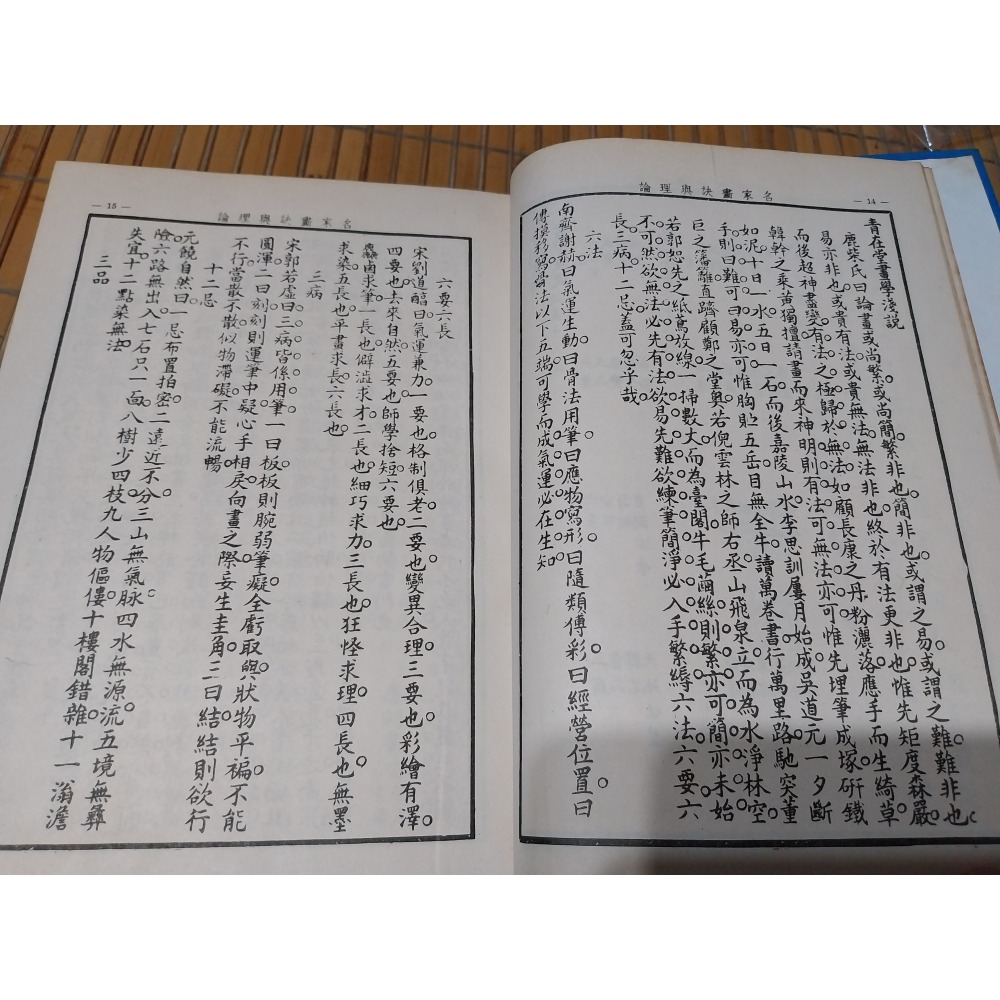 名家畫訣與理論
— 14 —
青在堂畫學淺說
鹿柴氏曰論畫或尚繁或尚簡。繁非也。簡非也。或謂之易。或謂之難。難非也。
易亦非也。或貴有法。或貴無法。無法非也。終於有法更非也。惟先矩度森嚴。
而後超神盡變。有法之極歸於無法。如顧長康之丹粉灑落應手而生綺草
韓幹之乘黃獨擅請畫而來神明則有法可無法亦可惟先埋筆成塚研鐵
如泥。十日一水五日一石。而後嘉陵山水李思訓屢月始成吳道元一夕斷
手則曰難可曰易亦可惟胸貯五岳目無全牛讀萬卷書行萬里路馳突董
巨之籓籬直躋顧鄭之堂奧。若倪雲林之師右丞山飛泉立而為水淨林空
若郭恕先之紙鳶放線一掃數丈而為臺閣牛毛繭絲則繁亦可簡亦未始
不可然欲無法必先有法欲易先難欲練筆簡淨必入手繁縟六法六要六
長三病十二忌蓋可忽乎哉
六法
南齊謝赫曰氣運生動。曰骨法用筆。曰應物寫形。曰隨類傅彩。曰經營位置。曰
傳摸移寫。骨法以下五端可學而成氣運必在生知
名家畫訣與理論
— 15 —
六要六長
宋劉道醇曰氣運兼力一要也。格制俱老二要也。變異合理三要也。彩繪有澤。
四要也。去來自然。五要也。師學捨短六要也。
麤鹵求筆一長也。僻澁求才二長也。細巧求力三長也。狂怪求理四長也。無墨
求染五長也。平畫求長六長也。
三病
宋郭若虛曰三病皆係用筆。一曰板。板則腕弱筆癡全虧取與狀物平褊。不能
圓渾二曰刻。刻則運筆中疑心手相戾。向畫之際妄生圭角。三曰結。結則欲行
不行當散不散似物滯礙不能流暢
十二忌
元饒自然曰一忌布置拍密。二遠近不分。三山無氣脉。四水無源流。五境無彞
險。六路無出入。七石只一面。八樹少四枝。九人物傴僂。十樓閣錯雜。十一滃澹
失宜。十二點染無法。
三品